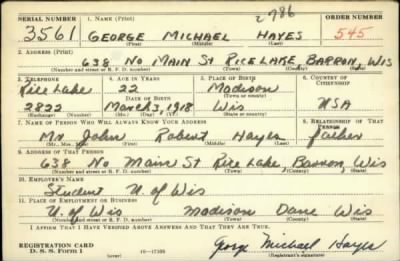 SERIAL NUMBER
1. NAME (Print)
2786
ORDER NUMBER
3561
GEORGE MICHAEL HAYES
545
(First) (Middle) (Last)
2. ADDRESS (Print)
638 No MAIN St RICE LAKE BARRON, WIS
(Number and street or R. F. D. number) (Town) (County) (State)
3. TELEPHONE
4. AGE IN YEARS
5. PLACE OF BIRTH
6. COUNTRY OF CITIZENSHIP
Rice Lake
22
Madison
DATE OF BIRTH
(Town or county)
2822
March 3, 1918
Wis
USA
(Exchange) (Number)
(Mo.) (Day) (Yr.)
(State or country)
7. NAME OF PERSON WHO WILL ALWAYS KNOW YOUR ADDRESS
8. RELATIONSHIP OF THAT PERSON
Mr. John Robert Hayes
father
(Mr., Mrs., Miss) (First) (Middle) (Last)
9. ADDRESS OF THAT PERSON
638 No Main St Rice Lake, Barron, Wis
(Number and street or R. F. D. number) (Town) (County) (State)
10. EMPLOYER'S NAME
Student U. of Wis
11. PLACE OF EMPLOYMENT OR BUSINESS
U. of Wis Madison Dane Wis
(Number and street or R. F. D. number) (Town) (County) (State)
I AFFIRM THAT I HAVE VERIFIED ABOVE ANSWERS AND THAT THEY ARE TRUE.
REGISTRATION CARD
D. S. S. Form 1
(over)
16—17105
George Michael Hayes
(Registrant's signature)